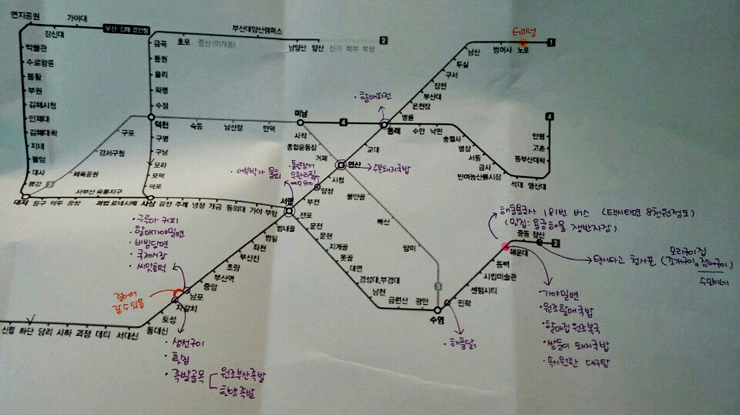 연지공원 가야대
장신대
박물관
수로왕릉
봉황
부원
김해시청
인제대
김해대학
지내
불암
대사
평강
대저
등구
덕두
공항
서부산유통지구
사상
금곡
호포
증산 (미개통)
부산대양산캠퍼스
남양산
양산
신기
북부
북정
2
동원
율리
화명
수정
덕천
구명
구남
모라
모덕
덕포
구포
강서구청
체육공원
숙등
남산정
만덕
미남
4
동래
사직
종합운동장
거제
연산
물만골
배산
망미
3
수영
터미널
1
노포
범어사
남산
두실
구서
장전
부산대
온천장
명륜
할매파전
교대
수안
낙민
충렬사
명장
서동
금사
반여농산물시장
석대
영산대
동부산대학
고촌
안평
4
수변돼지국밥
시청
양정
부전
서면
감전
주례
냉정
개금
동의대
가야
부암
전포
문전
문현
지게골
못골
대연
경성대,부경대
남천
금련산
광안
민락
센텀시티
시립미술관
동백
해운대
중동
장산
2
범내골
범일
좌천
부산진
초량
부산역
중앙
남포
자갈치
토성
동대신
서대신
대티
괴정
사하
당리
하단
신평
· 할매가야밀면
· 비빔당면
· 국제시장
· 씨앗호떡
걸어서
갈 수 있음
· 생선구이
· 횟집
· 족발골목
원조부산족발
한양족발
· 해풍닭
해동용궁사 181번 버스 (택시타면 8천원정도)
(맛집: 용궁해물 쟁반자장)
택시타고 청사포
수민이네
· 가야밀면
· 원조할매국밥
· 할매집 원조복국
· 쌍둥이 돼지국밥
· 속씨원한 대구탕